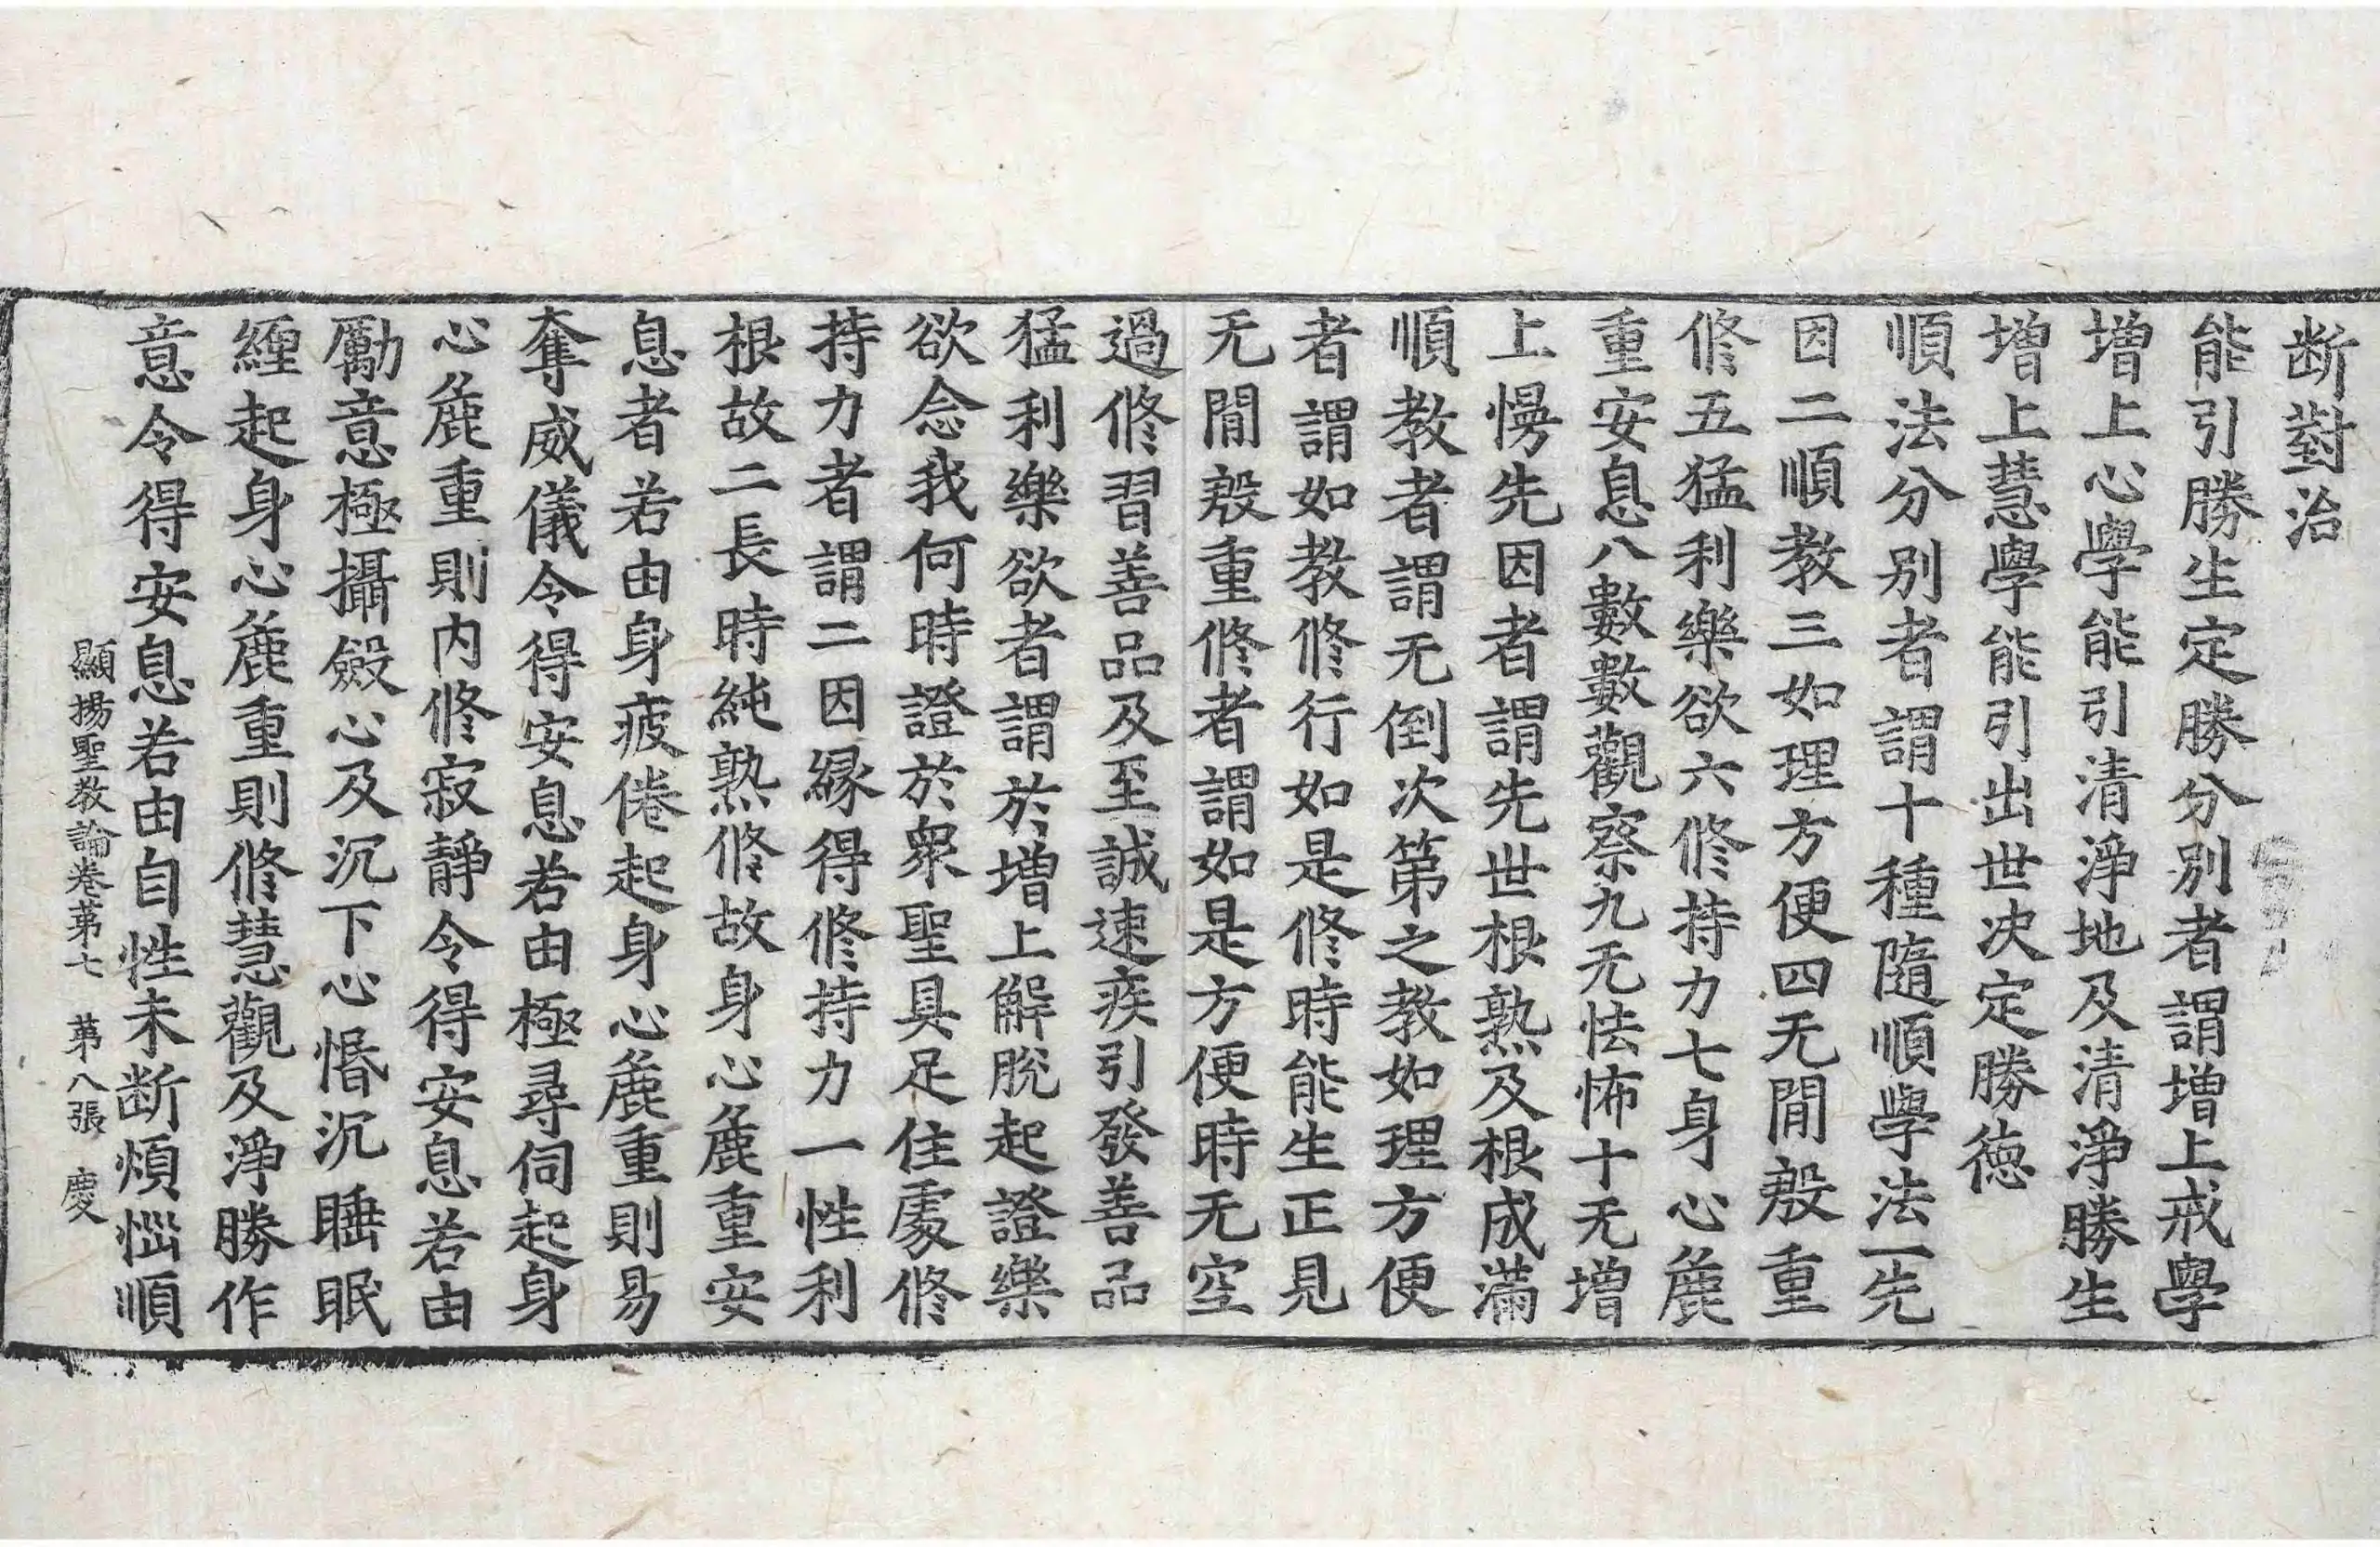 断對治
能引勝生定勝分別者謂增上戒學
增上心學能引清淨地及清淨勝生
增上慧學能引出世決定勝德
順法分別者謂十種隨順學法一先
因二順教三如理方便四无閒殷重
修五猛利樂欲六修持力七身心麁
重安息八數數觀察九无怯怖十无增
上慢先因者謂先世根熟及根成滿
順教者謂无倒次第之教如理方便
者謂如教修行如是修時能生正見
无閒殷重修者謂如是方便時无空
過修習善品及至誠速疾引發善品
猛利樂欲者謂於增上解脫起證樂
欲念我何時證於衆聖具足住處修
持力者謂二因緣得修持力一性利
根故二長時純熟修故身心麁重安
息者若由身疲倦起身心麁重則易
奪威儀令得安息若由極尋伺起身
心麁重則內修寂靜令得安息若由
勵意極攝斂心及沉下心惛沉睡眠
纏起身心麁重則修慧觀及淨勝作
意令得安息若由自性未断煩惱順
顯揚聖教論卷苐七 苐八張 慶